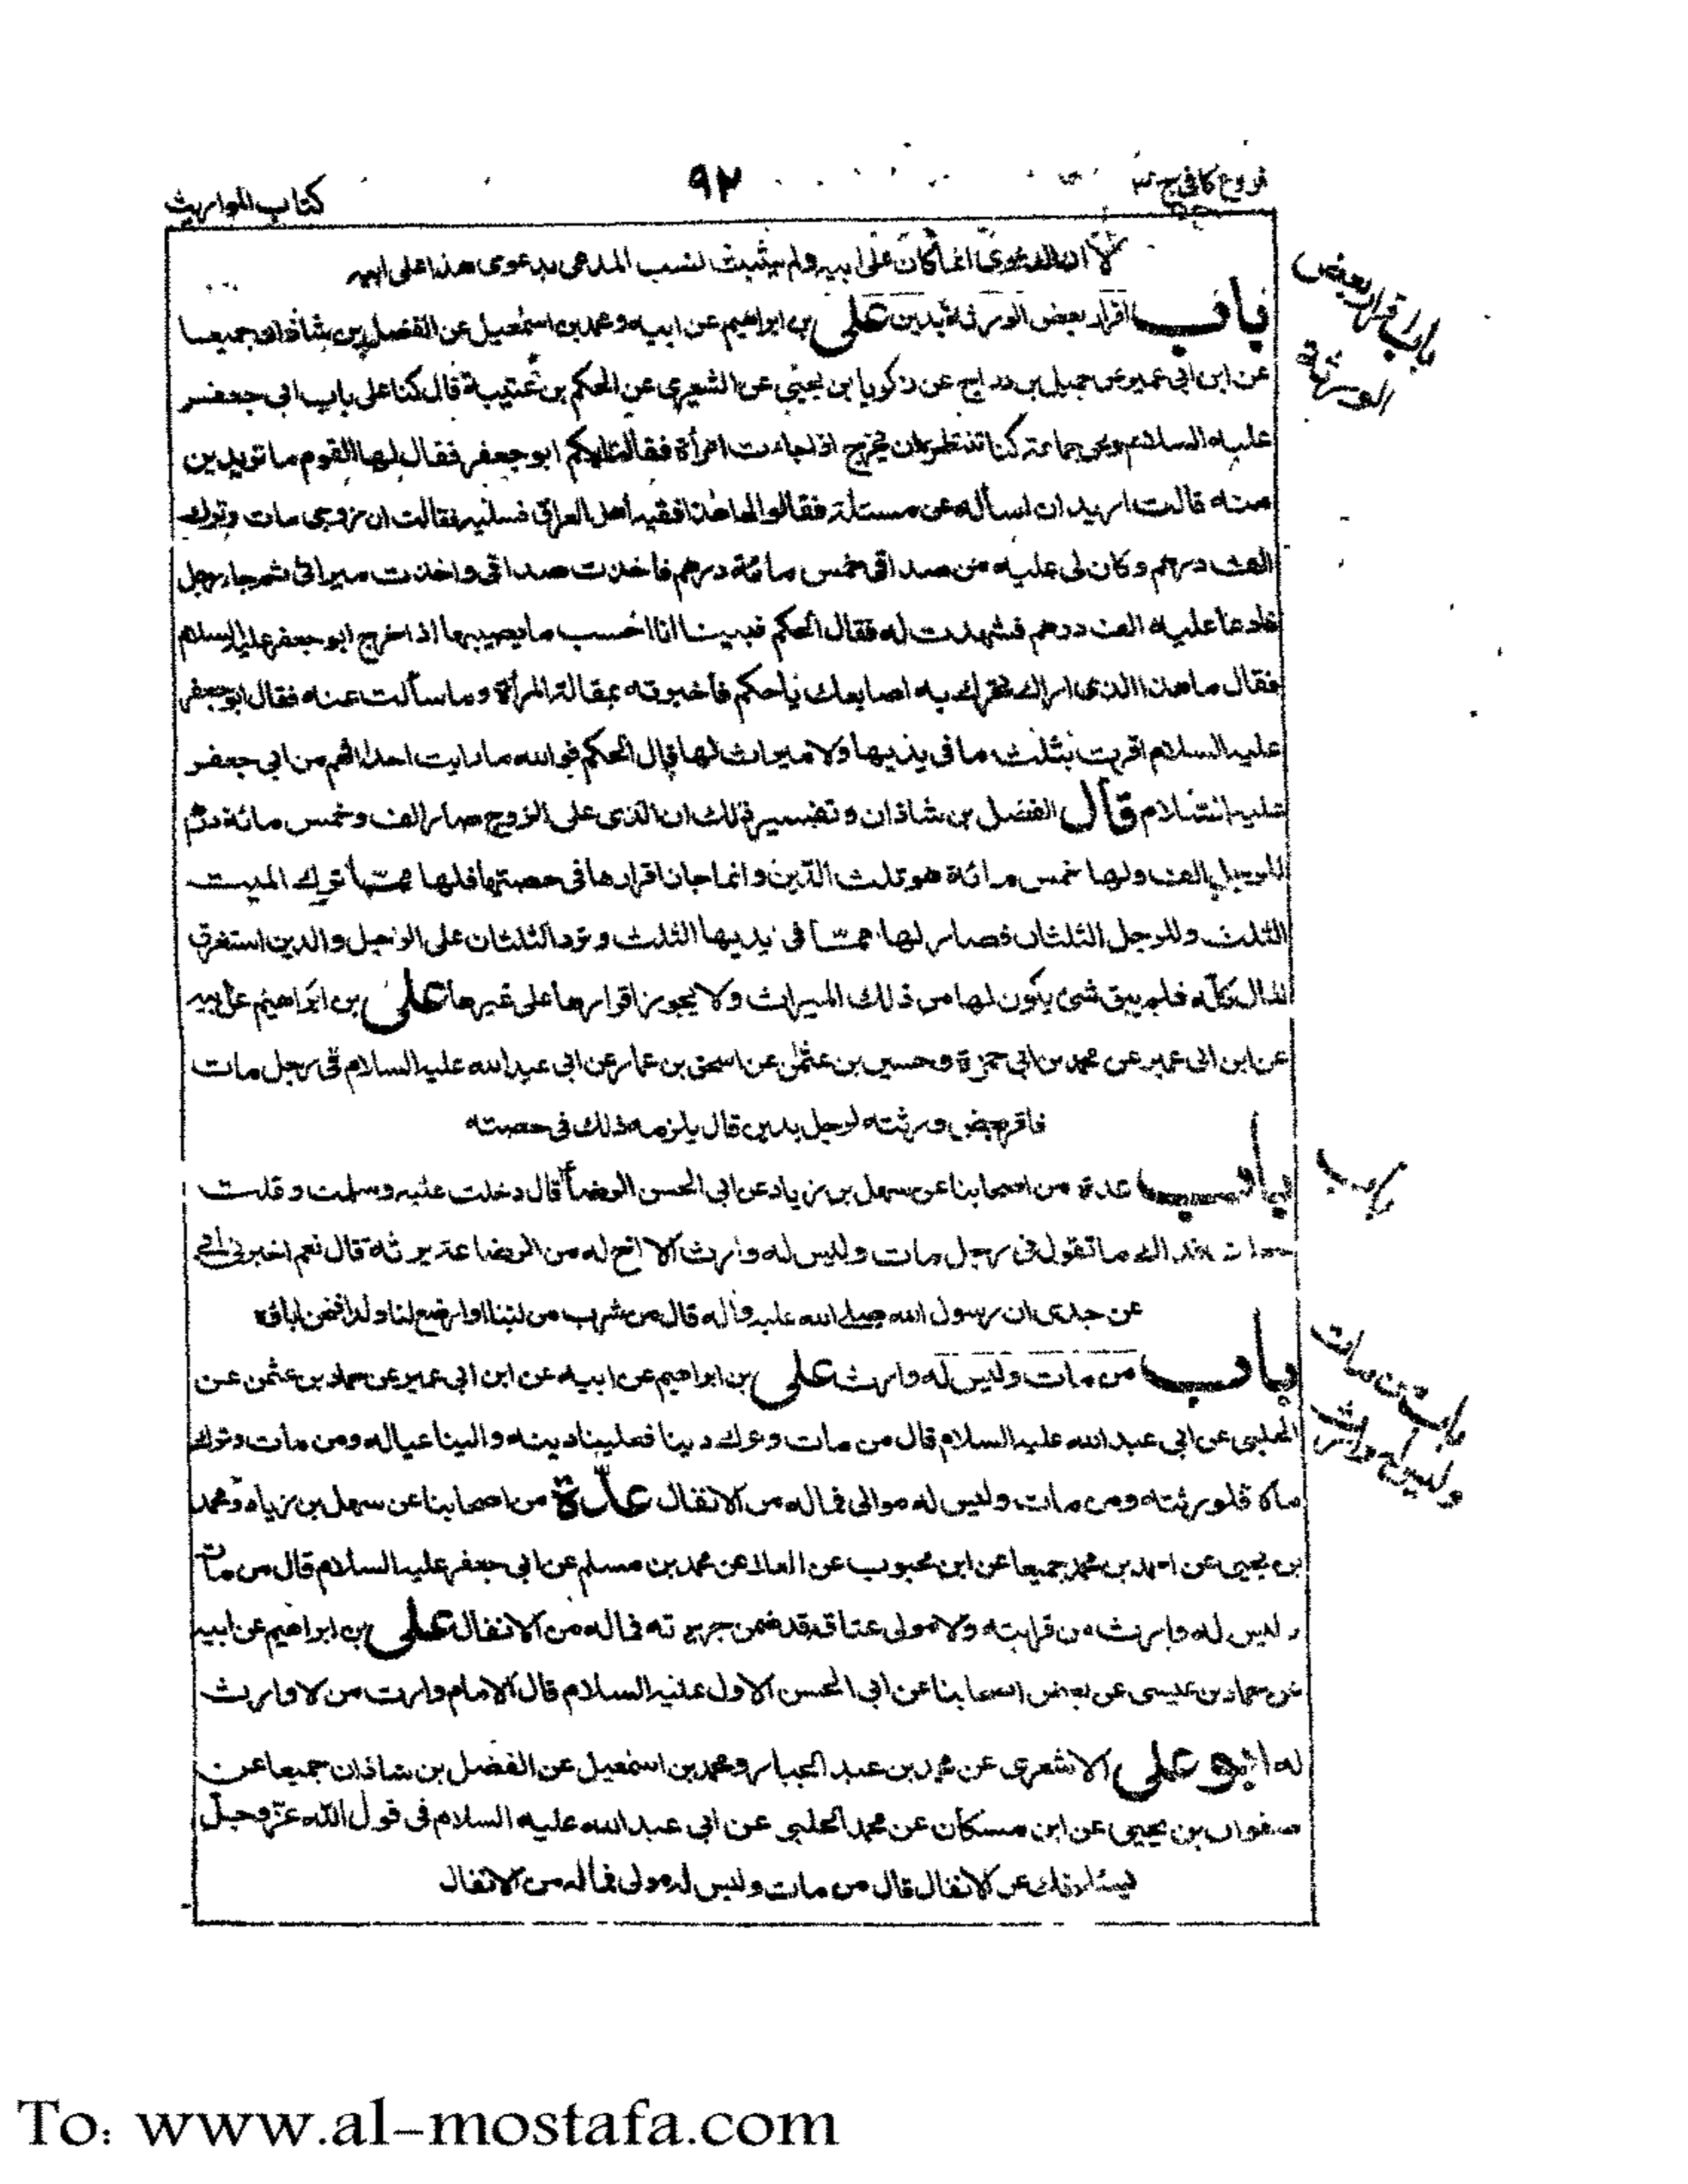 فروع كافى ج ٣
٩٢
كتاب المواريث
لان الدعوى انما كان على ابيه ولم يثبت نسب المدعى بدعوى هذا على ابيه
باب اقرار بعض الورثة بدين على بن ابراهيم عن ابيه ومحمد بن اسمعيل عن الفضل بن شاذان جميعا
عن ابن ابى عمير عن جميل بن دراج عن زكريا ابن يحيى عن الشعيرى عن الحكم بن عتيبة قال كنا على باب ابى جعفر
عليه السلام ونحن جماعة كنا ننتظر ان يخرج اذ جاءت امرأة فقالت ايكم ابو جعفر فقال لها القوم ما تريدين
منه قالت اريد ان اسأله عن مسئلة فقالوا لها هذا فقيه أهل العراق فسليه فقالت ان زوجى مات وترك
الف درهم وكان لى عليه من صداقى خمس مائة درهم فاخذت صداقى واخذت ميراثى ثم جاء رجل
فادعا عليه الف درهم فشهدت له فقال الحكم فبينا انا احسب ما يصيبها اذا خرج ابو جعفر عليه السلام
فقال ما هذا الذى اراك تحرك به اصابعك يا حكم فأخبرته بمقالة المرأة وما سألت عنه فقال ابو جعفر
عليه السلام اقرت بثلث ما فى يديها ولا ميراث لها قال الحكم فوالله ما رايت احدا افهم من ابى جعفر
عليه السلام قال الفضل بن شاذان وتفسير ذلك ان الذى على الزوج صار الف وخمس مائة درهم
للرجل الف ولها خمس مائة هو ثلث الدين وانما جاز اقرارها فى حصتها فلها مما ترك الميت
الثلث وللرجل الثلثان فصار لها مما فى يديها الثلث وترد الثلثان على الرجل والدين استغرق
المال كله فلم يبق شئ يكون لها من ذلك الميراث ولا يجوز اقرارها على غيرها على بن ابراهيم عن ابيه
عن ابن ابى عمير عن محمد بن ابى حمزة وحسين بن عثمن عن اسحق بن عمار عن ابى عبد الله عليه السلام فى رجل مات
فاقر بعض ورثته لرجل بدين قال يلزمه ذلك فى حصته
باب عدة من اصحابنا عن سهل بن زياد عن ابى الحسن الرضا قال دخلت عليه وسلمت وقلت
جعلت فداك ما تقول فى رجل مات وليس له وارث الا اخ له من الرضاعة يرثه قال نعم اخبرنى ابى
عن جدى ان رسول الله صلى الله عليه واله قال من شرب من لبننا او ارضع لنا ولدا فنحن اباؤه
باب من مات وليس له وارث على بن ابراهيم عن ابيه عن ابن ابى عمير عن حماد بن عثمن عن
الحلبى عن ابى عبد الله عليه السلام قال من مات وترك دينا فعلينا دينه والينا عياله ومن مات وترك
مالا فلورثته ومن مات وليس له موالى فماله من الانفال عدة من اصحابنا عن سهل بن زياد ومحمد
بن يحيى عن احمد بن محمد جميعا عن ابن محبوب عن العلا عن محمد بن مسلم عن ابى جعفر عليه السلام قال من مات
وليس له وارث من قرابته ولا مولى عتاقة قد ضمن جريرته فماله من الانفال على بن ابراهيم عن ابيه
عن حماد بن عيسى عن بعض اصحابنا عن ابى الحسن الاول عليه السلام قال الامام وارث من لا وارث
له ابو على الاشعرى عن محمد بن عبد الجبار ومحمد بن اسمعيل عن الفضل بن شاذان جميعا عن
صفوان بن يحيى عن ابن مسكان عن محمد الحلبى عن ابى عبد الله عليه السلام فى قول الله عز وجل
يسئلونك عن الانفال قال من مات وليس له مولى فماله من الانفال
باب اقرار بعض
الورثة
باب
باب من مات
وليس له وارث
To: www.al-mostafa.com